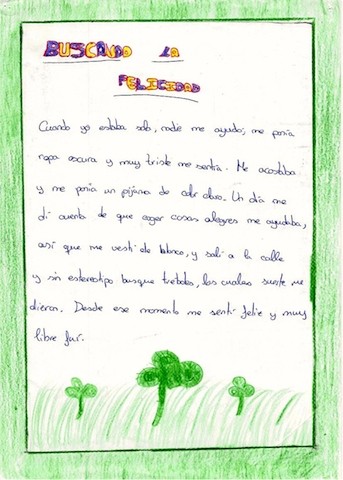 BUSCANDO LA
FELICIDAD
Cuando yo estaba solo, nadie me ayudó; me ponía
ropa oscura y muy triste me sentía. Me acostaba
y me ponía un pijama de color claro. Un día me
di cuenta de que coger cosas alegres me ayudaba,
así que me vestí de blanco, y salí a la calle
y sin estereotipo busque treboles, los cuales suerte me
dieron. Desde ese momento me sentí feliz y muy
libre fuí.